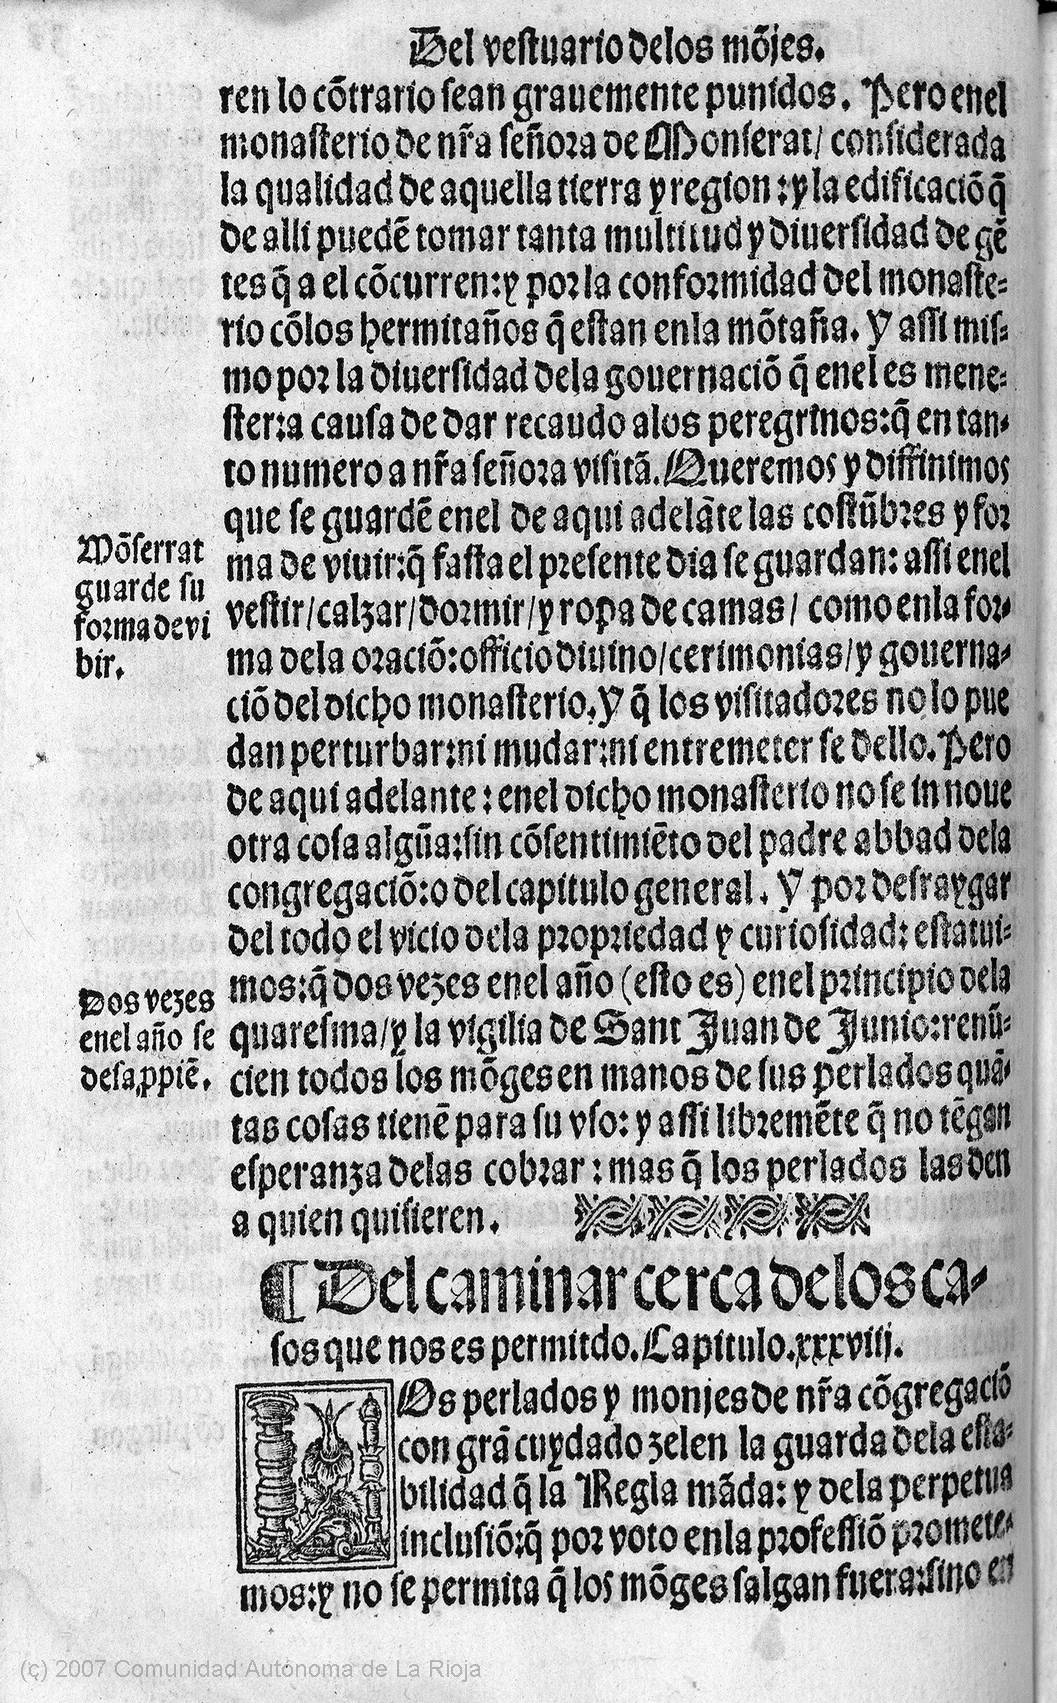 Del vestuario delos mõjes.
ren lo cõtrario sean grauemente punidos. Pero enel
monasterio de nr̃a señora de Monserat/ considerada
la qualidad de aquella tierra y region: y la edificaciõ q̃
de alli puedẽ tomar tanta multitud y diuersidad de gẽ
tes q̃ a el cõcurren: y por la conformidad del monaste-
rio cõ los hermitaños q̃ estan enla mõtaña. Y assi mis-
mo por la diuersidad dela gouernaciõ q̃ enel es mene-
ster: a causa de dar recaudo alos peregrinos: q̃ en tan-
to numero a nr̃a señora visitã. Queremos y diffinimos
que se guardẽ enel de aqui adelãte las costũbres y for
ma de viuir: q̃ fasta el presente dia se guardan: assi enel
vestir/calzar/dormir/y ropa de camas/ como enla for-
ma dela oraciõ: officio diuino/cerimonias/y gouerna-
ciõ del dicho monasterio. Y q̃ los visitadores no lo pue
dan perturbar: ni mudar: ni entremeter se dello. Pero
de aqui adelante: enel dicho monasterio no se in noue
otra cosa algũa: sin cõsentimiẽto del padre abbad dela
congregaciõ: o del capitulo general. Y por desraygar
del todo el vicio dela propriedad y curiosidad: estatui-
mos: q̃ dos vezes enel año (esto es) enel principio dela
quaresma/y la vigilia de Sant Juan de Junio: renũ-
cien todos los mõges en manos de sus perlados quã-
tas cosas tienẽ para su vso: y assi libremẽte q̃ no tẽgan
esperanza delas cobrar: mas q̃ los perlados las den
a quien quisieren.
Mõserrat
guarde su
forma de vi
bir.
Dos vezes
enel año se
desapꝓpiẽ.
¶ Del caminar cerca de los ca-
sos que nos es permitdo. Capitulo.xxxviij.
LOs perlados y monjes de nr̃a cõgregaciõ
con grã cuydado zelen la guarda dela esta-
bilidad q̃ la Regla mãda: y dela perpetua
inclusiõ: q̃ por voto enla professiõ promete-
mos: y no se permita q̃ los mõges salgan fuera: sino en
(c) 2007 Comunidad Autónoma de La Rioja